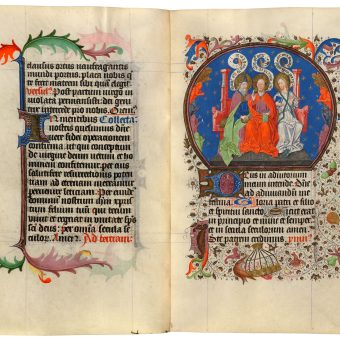 clausus ortus naufragantis
mundi portus. placa nobis q
te fecit matrem sibi qui regit
Versus Post partum virgo in
violata permansisti. dei geni
trix intercede pro nobis.
mentibus Collecta
nostris quesumus dñe
vere fidei
confirma. ut qui conceptum
de virgine deum verum et ho
minem confitemur. per eius
salutifere resurrectionis poten
ad eternam mereamur
pervenire leticiam. Per eundem
dominum nostrum ihm xpm
filium tuum qui tecum
et regnat in unitate spiritus
sci deus: per omnia secula se
culorum. Amen. Ad terciam
Eus in adiutorium
meum intende. Dñe
ad adiuvandum me
festina. Gloria patri et filio
et spiritui sancto. Sicut erat
in principio et nunc et semper
et in secula seculorum amen